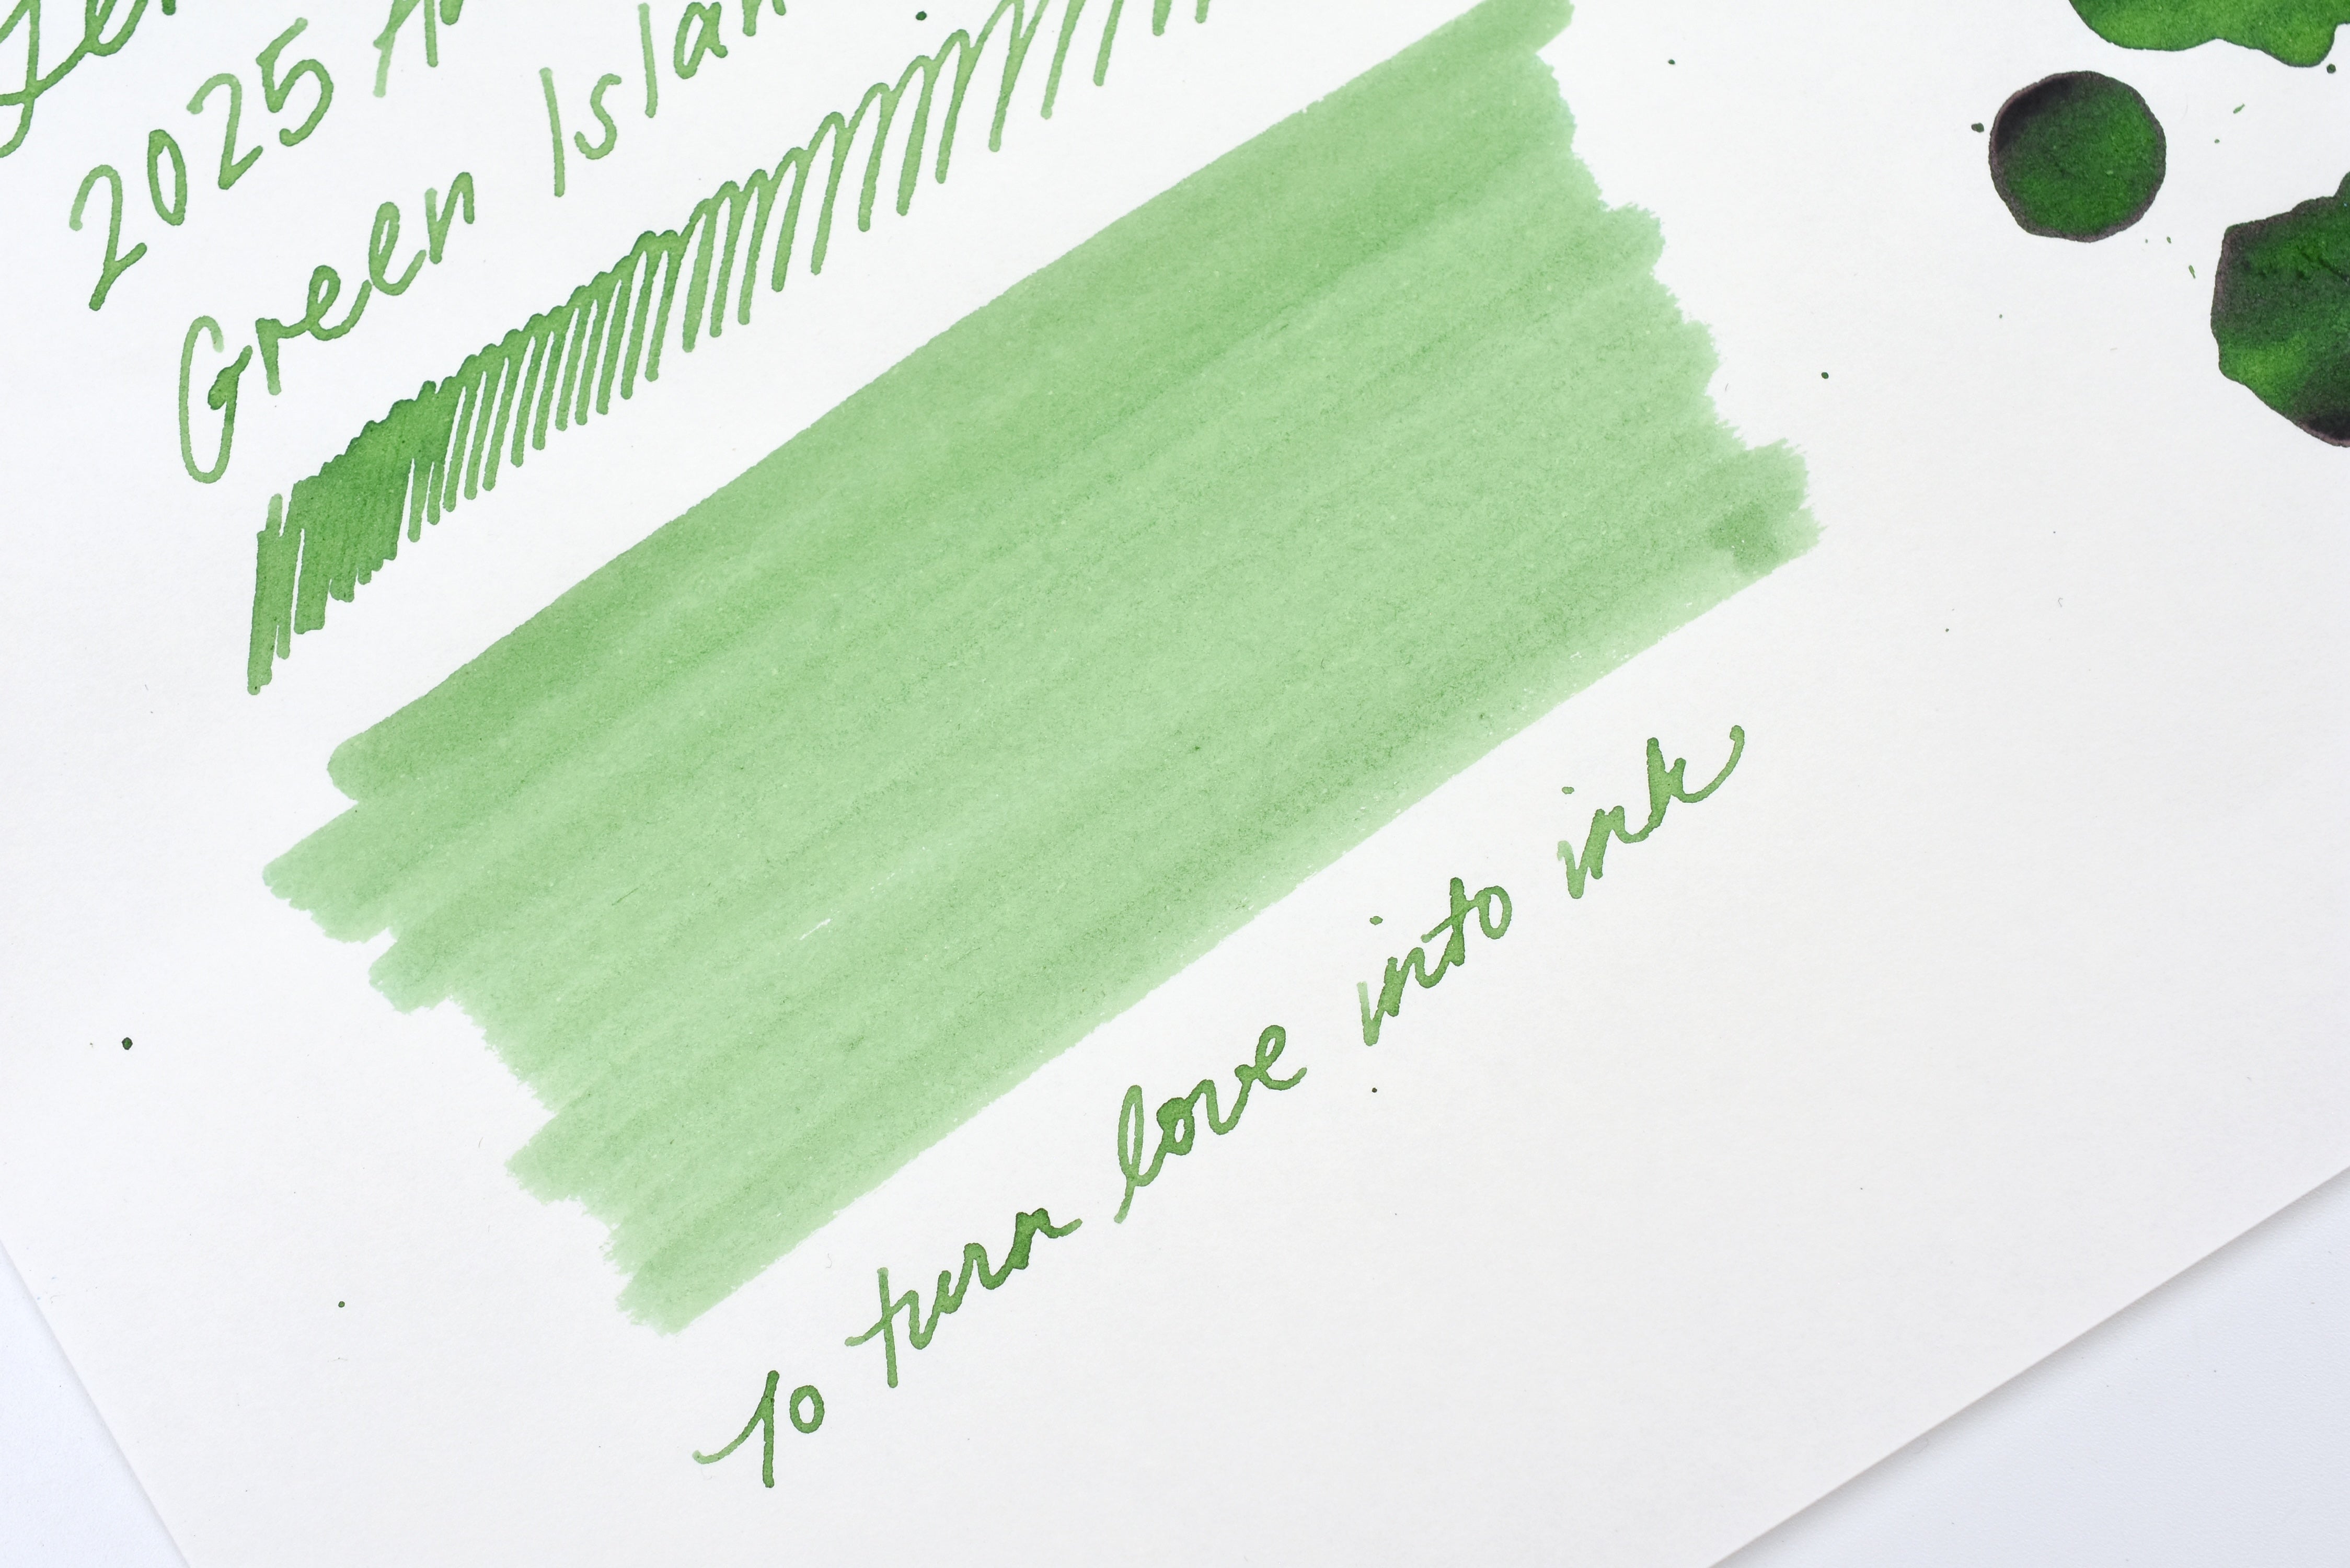 2025
Green Islan
to turn love into ink